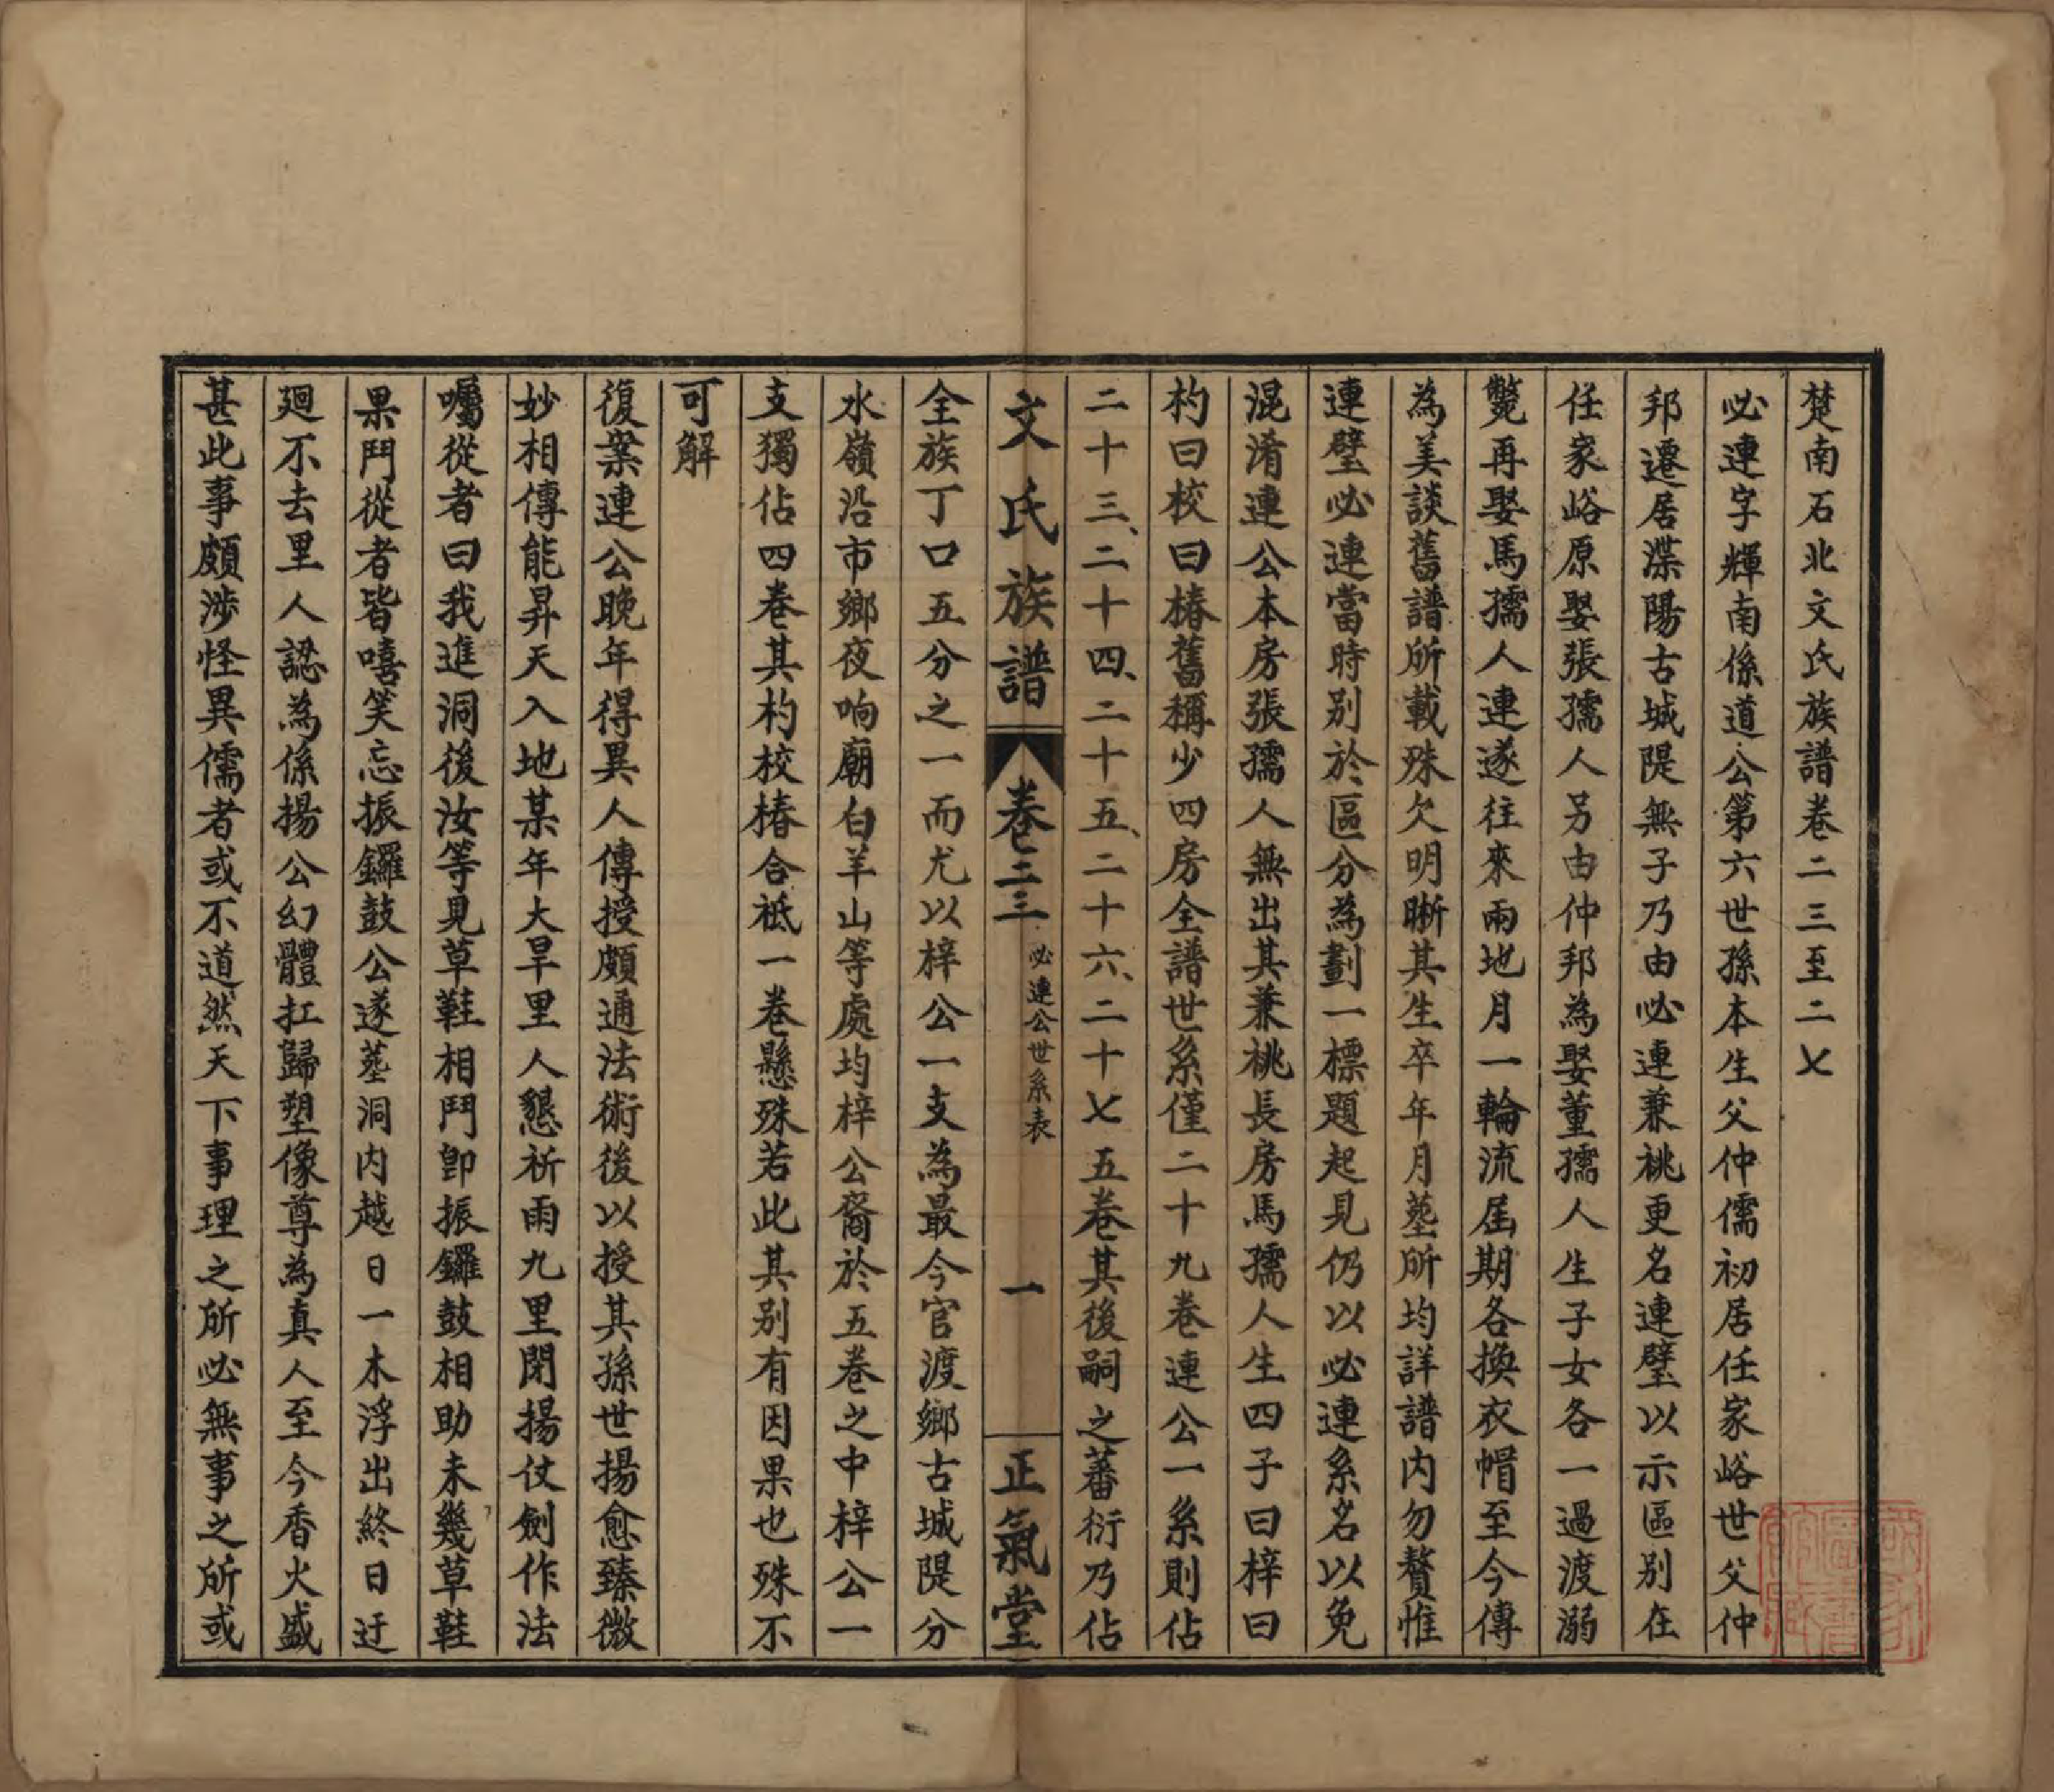 楚南石北文氏族譜卷二三至二七
必連字輝南係道公第六世孫本生父仲儒初居任家峪世父仲
邦遷居渫陽古城隄無子乃由必連兼祧更名連璧以示區別在
任家峪原娶張孺人另由仲邦為娶董孺人生子女各一過渡溺
斃再娶馬孺人連遂往來兩地月一輪流屆期各換衣帽至今傳
為美談舊譜所載殊欠明晰其生卒年月塟所均詳譜內勿贅惟
連璧必連當時別於區分為劃一標題起見仍以必連系名以免
混淆連公本房張孺人無出其兼祧長房馬孺人生四子曰梓曰
杓曰校曰椿舊稱少四房全譜世系僅二十九卷連公一系則佔
二十三、二十四、二十五、二十六、二十七五卷其後嗣之蕃衍乃佔
文氏族譜 卷二三 必連公世系表 一 正氣堂
全族丁口五分之一而尤以梓公一支為最今官渡鄉古城隄分
水嶺沿市鄉夜响廟白羊山等處均梓公裔於五卷之中梓公一
支獨佔四卷其杓校椿合祗一卷懸殊若此其別有因果也殊不
可解
復案連公晚年得異人傳授頗通法術後以授其孫世揚愈臻微
妙相傳能昇天入地某年大旱里人懇祈雨九里閉揚仗劍作法
囑從者曰我進洞後汝等見草鞋相鬥卽振鑼鼓相助未幾草鞋
果鬥從者皆嘻笑忘振鑼鼓公遂塟洞內越日一木浮出終日迂
廻不去里人認為係揚公幻體扛歸塑像尊為真人至今香火盛
甚此事頗涉怪異儒者或不道然天下事理之所必無事之所或